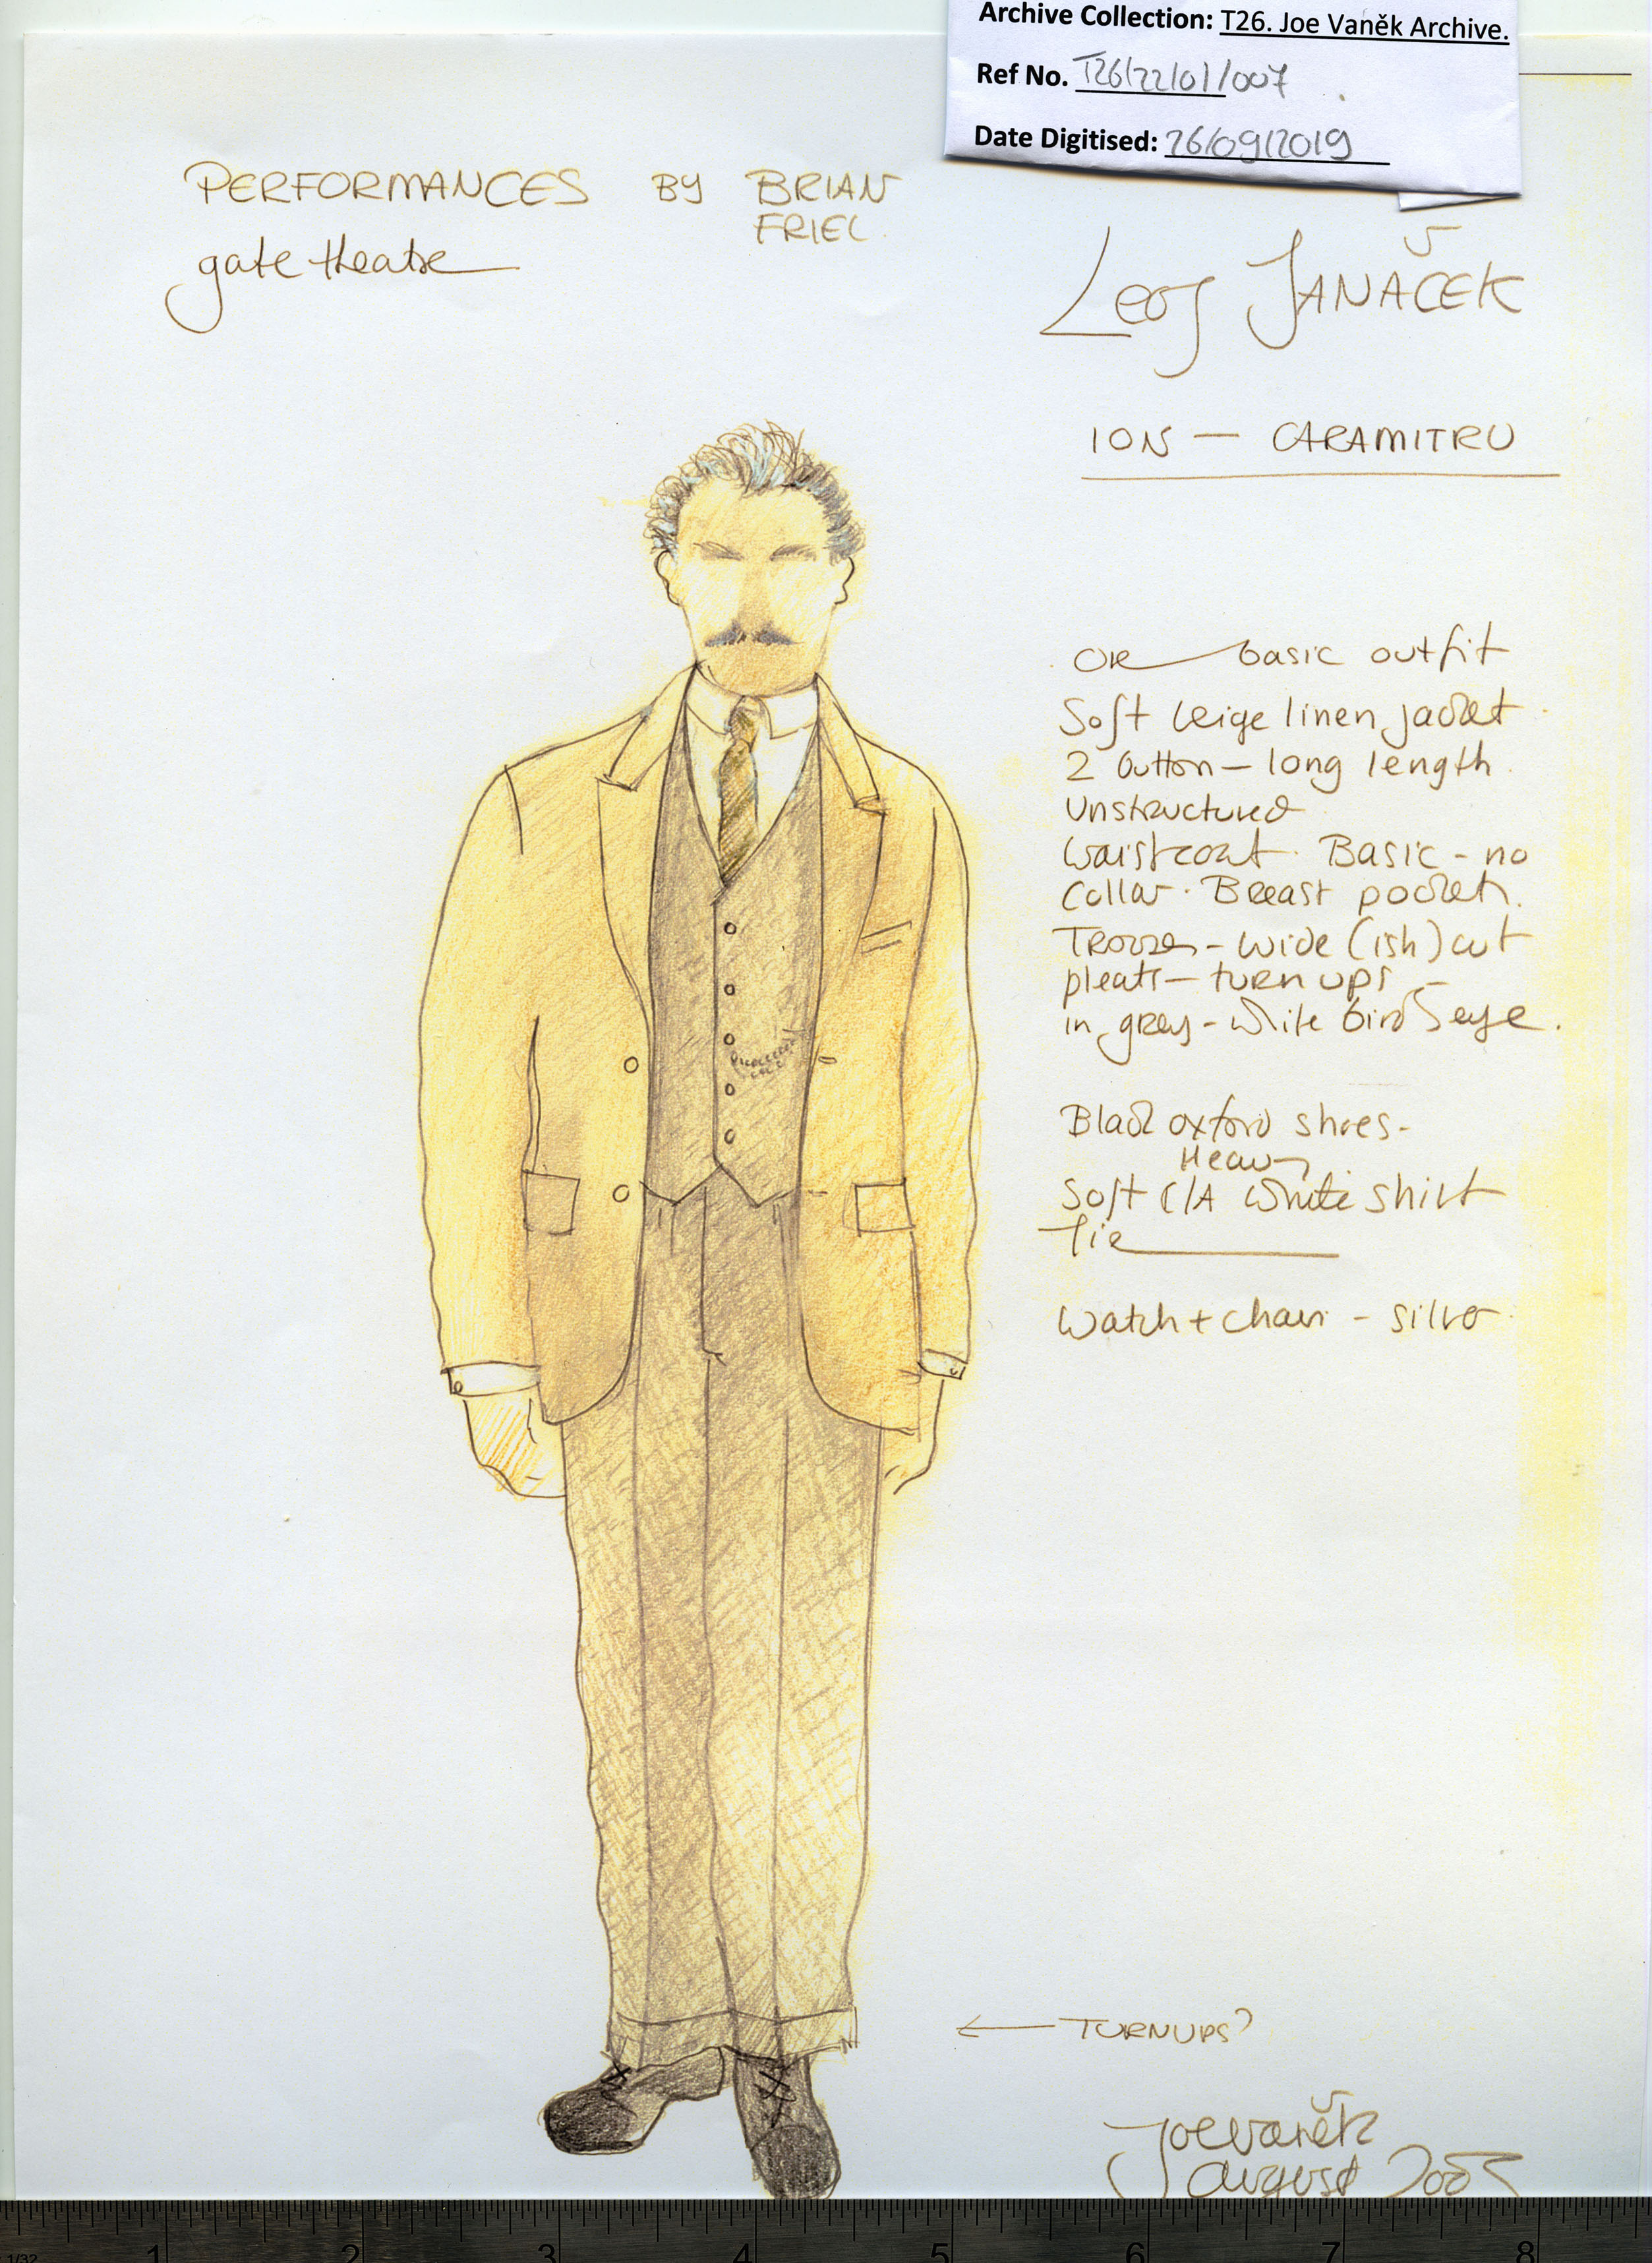 Archive Collection: T26. Joe Vaněk Archive.
Ref No. T26/22/01/007
Date Digitised: 26/09/2019
PERFORMANCES BY BRIAN
FRIEL
gate theatre
Leoš JANÁČEK
ION — CARAMITRU
OR basic outfit
Soft beige linen jacket
2 button — long length
Unstructured
Waistcoat. Basic - no
Collar. Breast pocket.
Trouser - wide (ish) cut
pleats — turn ups —
in grey - white birdseye.
Black oxford shoes -
Heavy
Soft C/A white shirt
Tie
Watch + chain - silver
← TURNUPS?
Joe Vaněk
August 2005
1/32 1 2 3 4 5 6 7 8